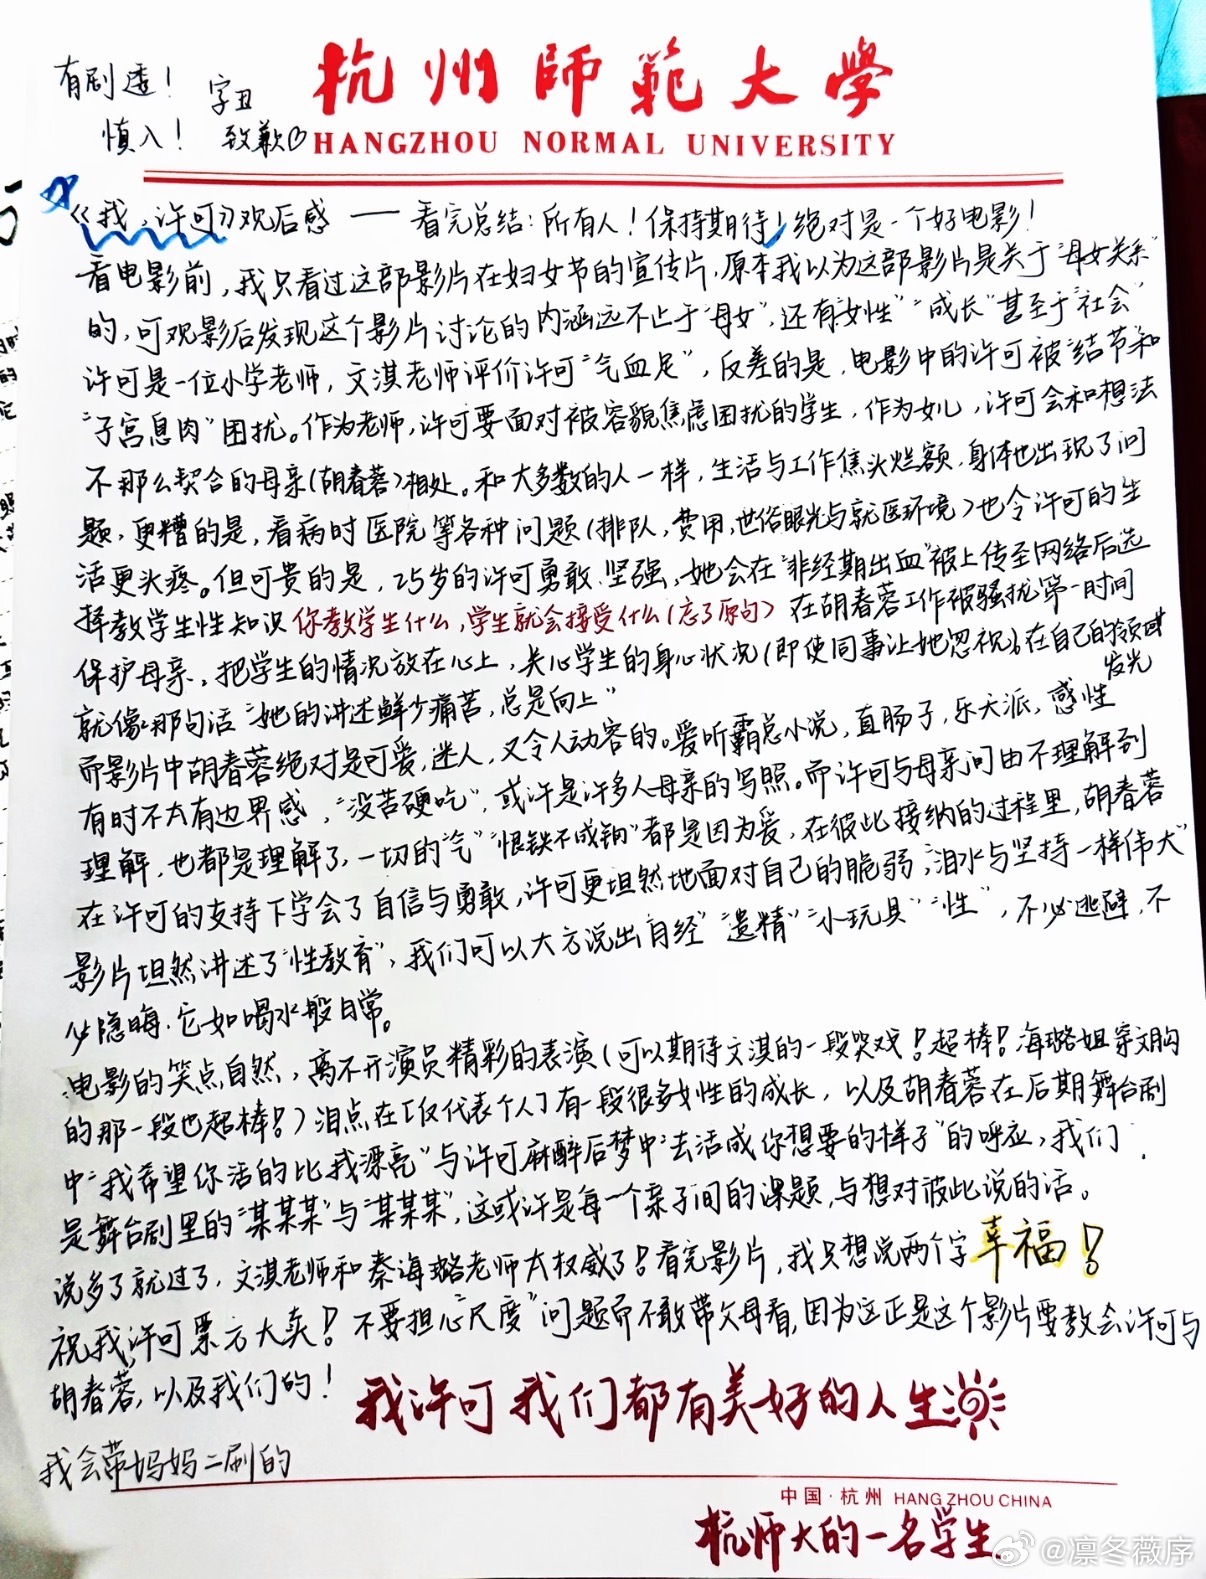 有剧透！
慎入！
字丑
致歉
杭州師範大學
HANGZHOU NORMAL UNIVERSITY
《我，许可》观后感 —— 看完总结：所有人！保持期待！绝对是一个好电影！
看电影前，我只看过这部影片在妇女节的宣传片，原本我以为这部影片是关于“母女关系”
的，可观影后发现这个影片讨论的内涵远不止于“母女”，还有“女性”“成长”甚至于“社会”
许可是一位小学老师，文淇老师评价许可“气血足”，反差的是，电影中的许可被“结节”和
“子宫息肉”困扰。作为老师，许可要面对被容貌焦虑困扰的学生，作为女儿，许可会和想法
不那么契合的母亲（胡春蓉）相处。和大多数的人一样，生活与工作焦头烂额，身体也出现了问
题，更糟的是，看病时医院等各种问题（排队，费用，世俗眼光与就医环境）也令许可的生
活更头疼。但可贵的是，25岁的许可勇敢、坚强，她会在“非经期出血”被上传至网络后选
择教学生性知识 你教学生什么，学生就会接受什么（忘了原句） 在胡春蓉工作被骚扰第一时间
保护母亲，把学生的情况放在心上，关心学生的身心状况（即使同事让她忽视），在自己的领域
发光
就像那句话“她的讲述鲜少痛苦，总是向上”
而影片中胡春蓉绝对是可爱，迷人，又令人动容的。爱听霸总小说，直肠子，乐天派，感性
有时不太有边界感，“没苦硬吃”，或许是许多人母亲的写照。而许可与母亲间由不理解到
理解，也都是理解了，一切的“气”“恨铁不成钢”都是因为爱，在彼此接纳的过程里，胡春蓉
在许可的支持下学会了自信与勇敢，许可更坦然地面对自己的脆弱；“泪水与坚持一样伟大”
影片坦然讲述了“性教育”，我们可以大方说出“月经”“遗精”“小玩具”“性”，不必逃避，不
必隐晦，它如喝水般日常。
电影的笑点自然，离不开演员精彩的表演（可以期待文淇的一段哭戏！超棒！海璐姐穿文胸
的那一段也超棒！）泪点在［仅代表个人］有一段很多女性的成长，以及胡春蓉在后期舞台剧
中“我希望你活的比我漂亮”与许可麻醉后梦中“去活成你想要的样子”的呼应，我们
是舞台剧里的“某某某”与“某某某”，这或许是每一个亲子间的课题，与想对彼此说的话。
说多了就过了，文淇老师和秦海璐老师太权威了！看完影片，我只想说两个字 幸福！
祝我，许可票房大卖！不要担心“尺度”问题而不敢带父母看，因为这正是这个影片要教会许可与
胡春蓉，以及我们的！
我许可 我们都有美好的人生
我会带妈妈二刷的
中国·杭州 HANG ZHOU CHINA
杭师大的一名学生.
@凛冬薇序